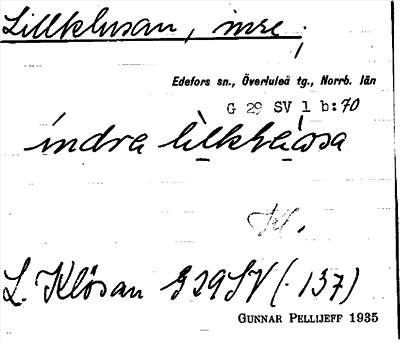 Lillklusan, inre;
Edefors sn., Överluleå tg., Norrb. län
G 29 SV 1 b:70
indra
L. Klösan G29SV (· 137)
GUNNAR PELLIJEFF 1935